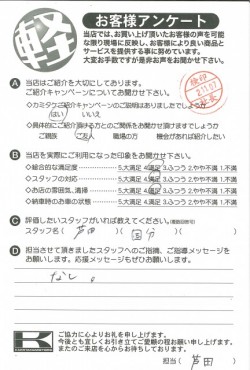 軽
お客様アンケート
当店では、お買い上げ頂いたお客様の声を可能
な限り現場に反映し、お客様により良い商品と
サービスを提供する事に努めています。
大変お手数ですが是非お声をお聞かせ下さい。
A 当店はご紹介を大切にしてあります。
ご紹介キャンペーンについてお聞かせ下さい。
◇カミタケご紹介キャンペーンのご説明はありましたでしょうか
はい いいえ
◇具体的にご紹介頂ける方とのご関係をお聞かせ頂けますでしょうか
ご親族 ご友人 職場の方 機会があれば紹介したい
B 当店を実際にご利用になった印象をお聞かせ下さい。
◇総合的な満足度 5.大満足 4.満足 3.ふつう 2.やや不満 1.不満
◇スタッフの対応 5.大満足 4.満足 3.ふつう 2.やや不満 1.不満
◇お店の雰囲気、清掃 5.大満足 4.満足 3.ふつう 2.やや不満 1.不満
◇納車時のお車の状態 5.大満足 4.満足 3.ふつう 2.やや不満 1.不満
C 評価したいスタッフがいれば教えてください。
スタッフ名( 芦田 )( 国分 )
D 担当させて頂きましたスタッフへのご指摘、ご指導メッセージを
お願いします。応援メッセージもぜひお願いします。
なし。
K
ご協力に心よりお礼を申し上げます。
今後とも宜しくお引き立てご愛顧の程お願い申し上げます。
またのご来店を心からお待ちしております。
担当( 芦田 )